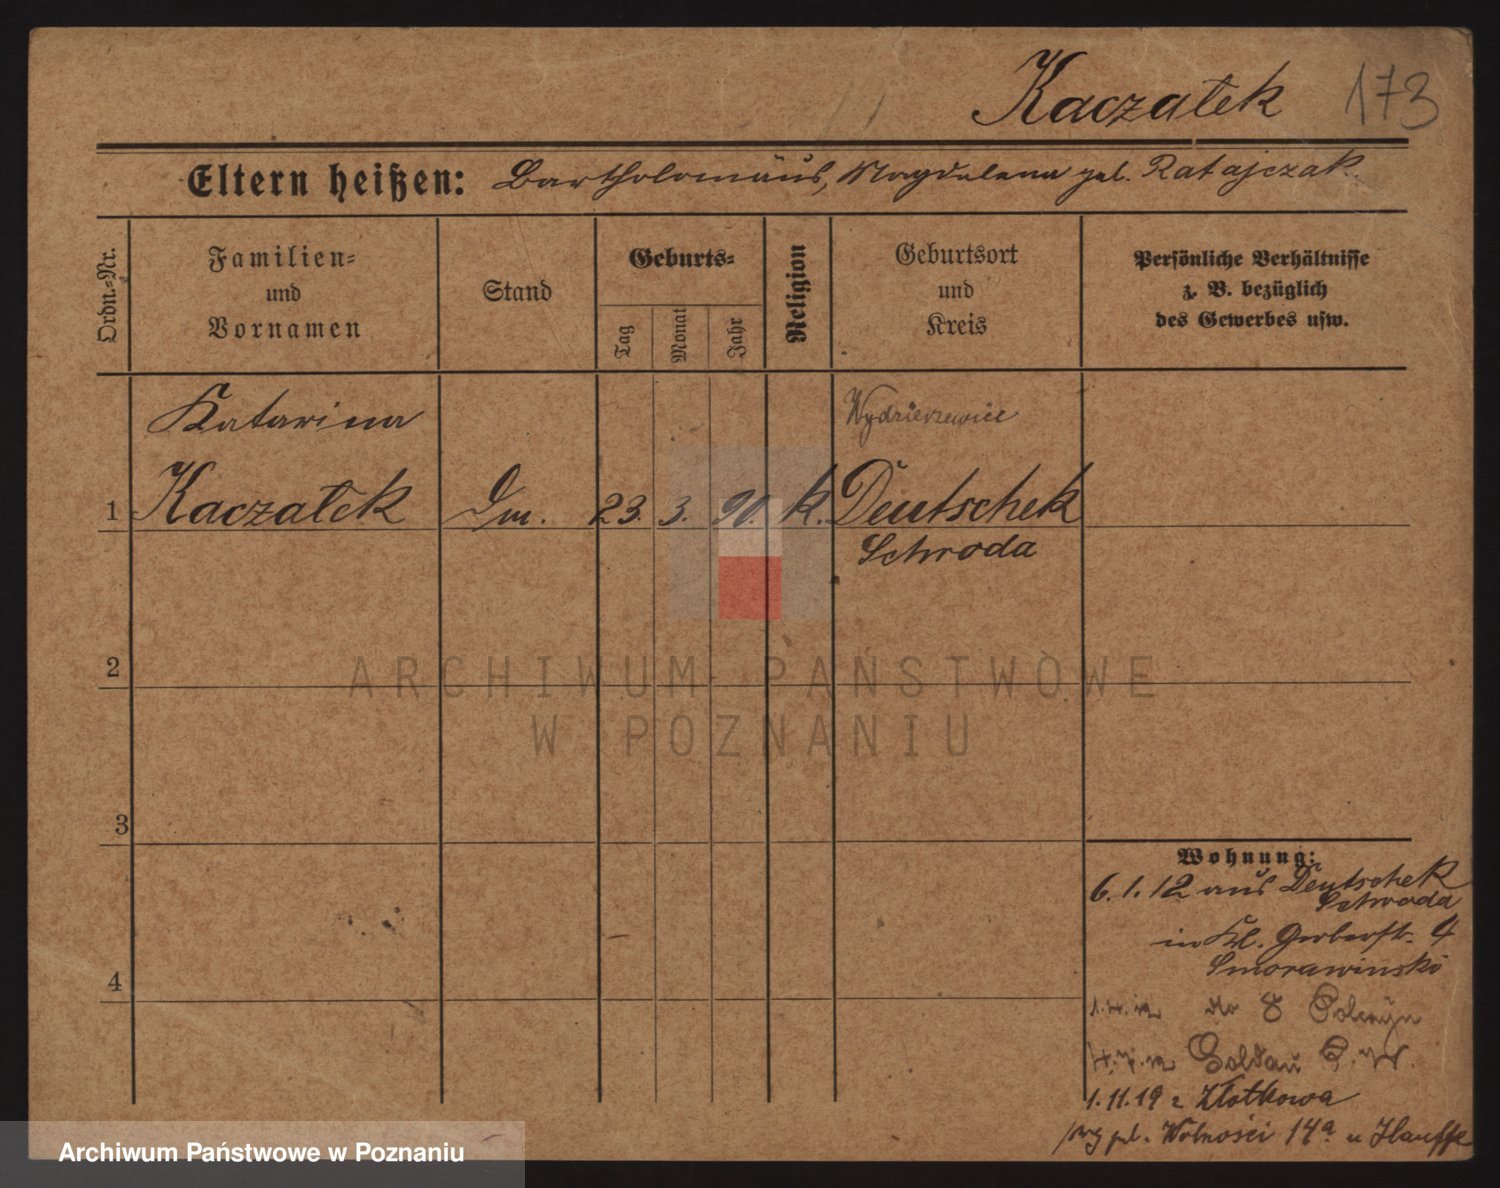 Kaczałek 173
Eltern heißen: Bartholomäus, Magdalena geb. Ratajczak.
Ordn.-Nr.
Familien- und Vornamen
Stand
Geburts-
Tag
Monat
Jahr
Religion
Geburtsort und Kreis
Persönliche Verhältnisse
z. B. bezüglich
des Gewerbes usw.
Katarina
Wydzierzewice
1 Kaczałek Dm. 23. 3. 90. k. Deutschek
Schroda
2
ARCHIWUM PAŃSTWOWE
W POZNANIU
3
Wohnung:
6.1.12 aus Deutschek
Schroda
in Kl. Gerberstr. 4
Smorawinski
4
8
Soldau
1.11.19 z Złotkowa
pl. Wolności 14a u Hauffe
Archiwum Państwowe w Poznaniu